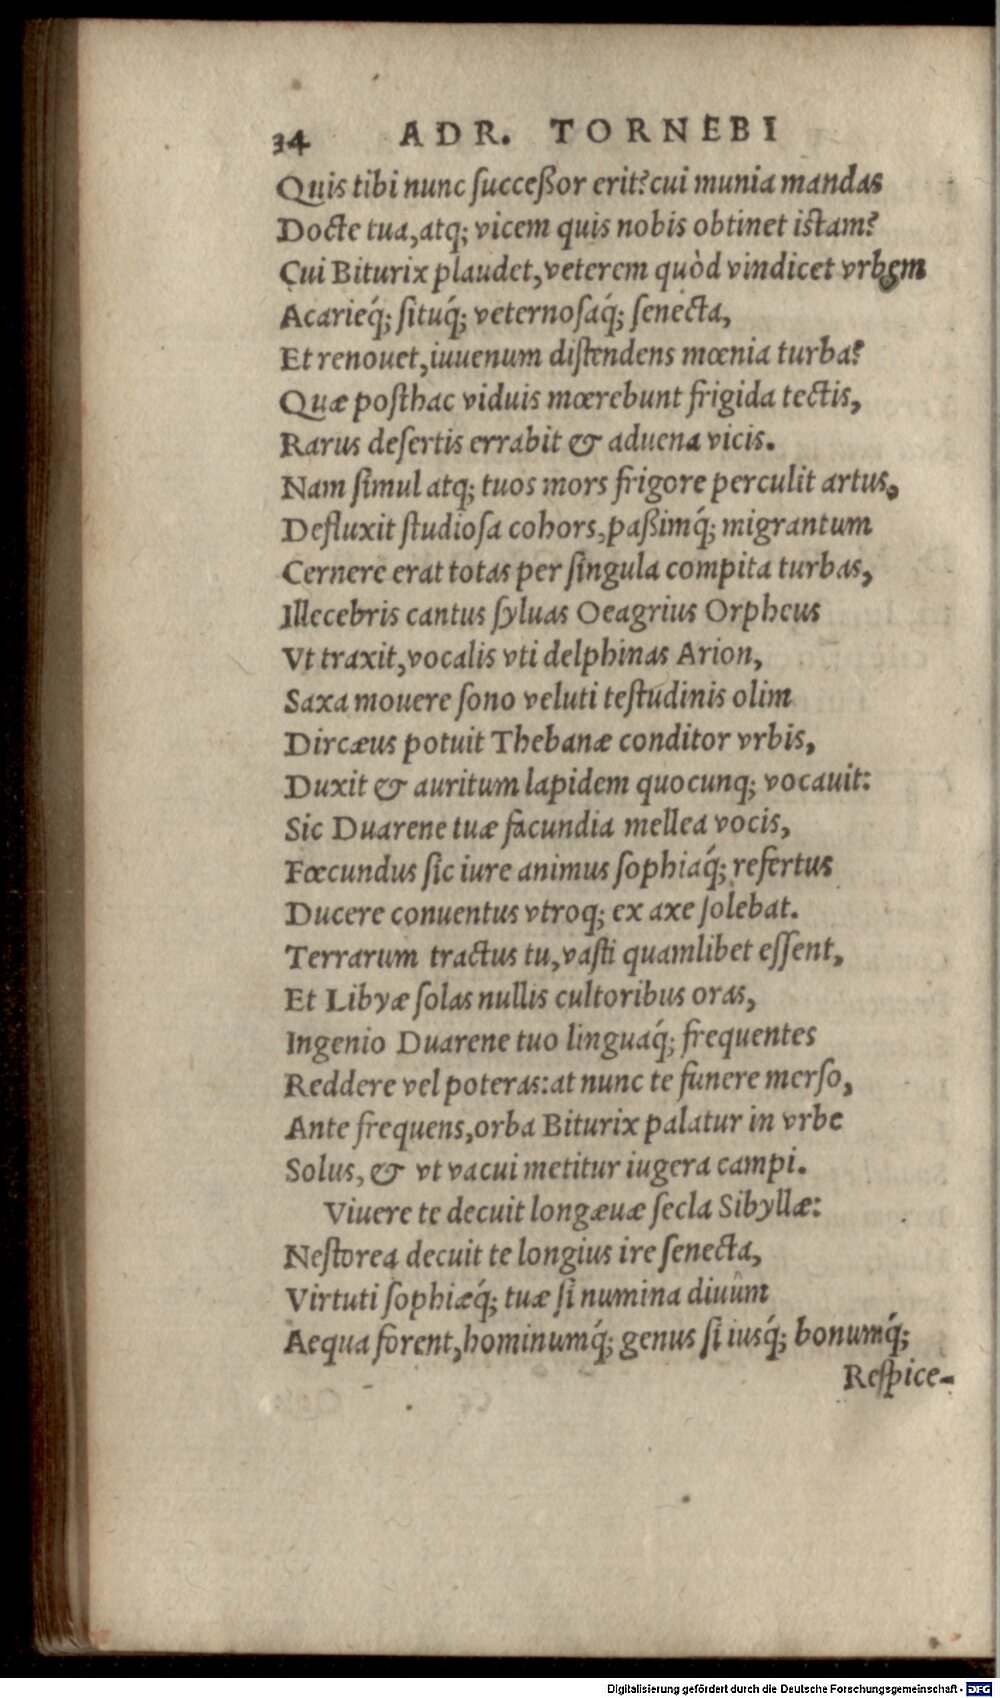 34 ADR. TORNEBI
Quis tibi nunc ſucceßor erit? cui munia mandas
Docte tua, atq; vicem quis nobis obtinet iſtam?
Cui Biturix plaudet, veterem quòd vindicet vrbem
A carieq́; ſituq́; veternoſaq́; ſenecta,
Et renouet, iuuenum diſtendens mœnia turba?
Quæ poſthac viduis mœrebunt frigida tectis,
Rarus deſertis errabit & aduena vicis.
Nam ſimul atq; tuos mors frigore perculit artus,
Defluxit ſtudioſa cohors, paßimq́; migrantum
Cernere erat totas per ſingula compita turbas,
Illecebris cantus ſyluas Oeagrius Orpheus
Vt traxit, vocalis vti delphinas Arion,
Saxa mouere ſono veluti teſtudinis olim
Dircæus potuit Thebanæ conditor vrbis,
Duxit & auritum lapidem quocunq; vocauit:
Sic Duarene tuæ facundia mellea vocis,
Fœcundus ſic iure animus ſophiaq́; refertus
Ducere conuentus vtroq; ex axe ſolebat.
Terrarum tractus tu, vaſti quamlibet eſſent,
Et Libyæ ſolas nullis cultoribus oras,
Ingenio Duarene tuo linguaq́; frequentes
Reddere vel poteras: at nunc te funere merſo,
Ante frequens, orba Biturix palatur in vrbe
Solus, & vt vacui metitur iugera campi.
Viuere te decuit longæuæ ſecla Sibyllæ:
Neſtorea decuit te longius ire ſenecta,
Virtuti ſophiæq́; tuæ ſi numina diuûm
Aequa forent, hominumq́; genus ſi iusq́; bonumq́;
Reſpice-
Digitalisierung gefördert durch die Deutsche Forschungsgemeinschaft - DFG